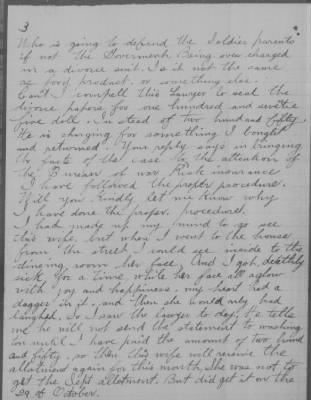 3
Who is going to defend the Soldier parents
if not the Goverment. Being over charged
in a divorce suit. Is it not the same
as food product, or something else.
Can't I compell this Lawyer to seal the
divorce papers for one hundred and seventie
five doll. Instead of two hundred fifty.
He is charging for something I bought
and returned. Your reply says in bringing
the facts of the case to the attention of
the Bureau of war Risk insurance
I have followed the proper procedure.
Will you kindly let me know why
I have done the proper procedure.
I had made up my mind to go see
this wife, but when I went to the house
from the street I could see inside to the
dineing room her face. And I got deathly
sick for a time, while her face all aglow
with joy and happiness. my heart had a
dagger in it. and then she would only had
laughed. So I saw the lawyer to day. He tells
me he will not send the statement to washing
ton until I have paid the amount of two hund
and fifty. so then this wife will receive the
allotment again for this month. She was not to
get the Sept allotment. But did get it on the
29 of October.